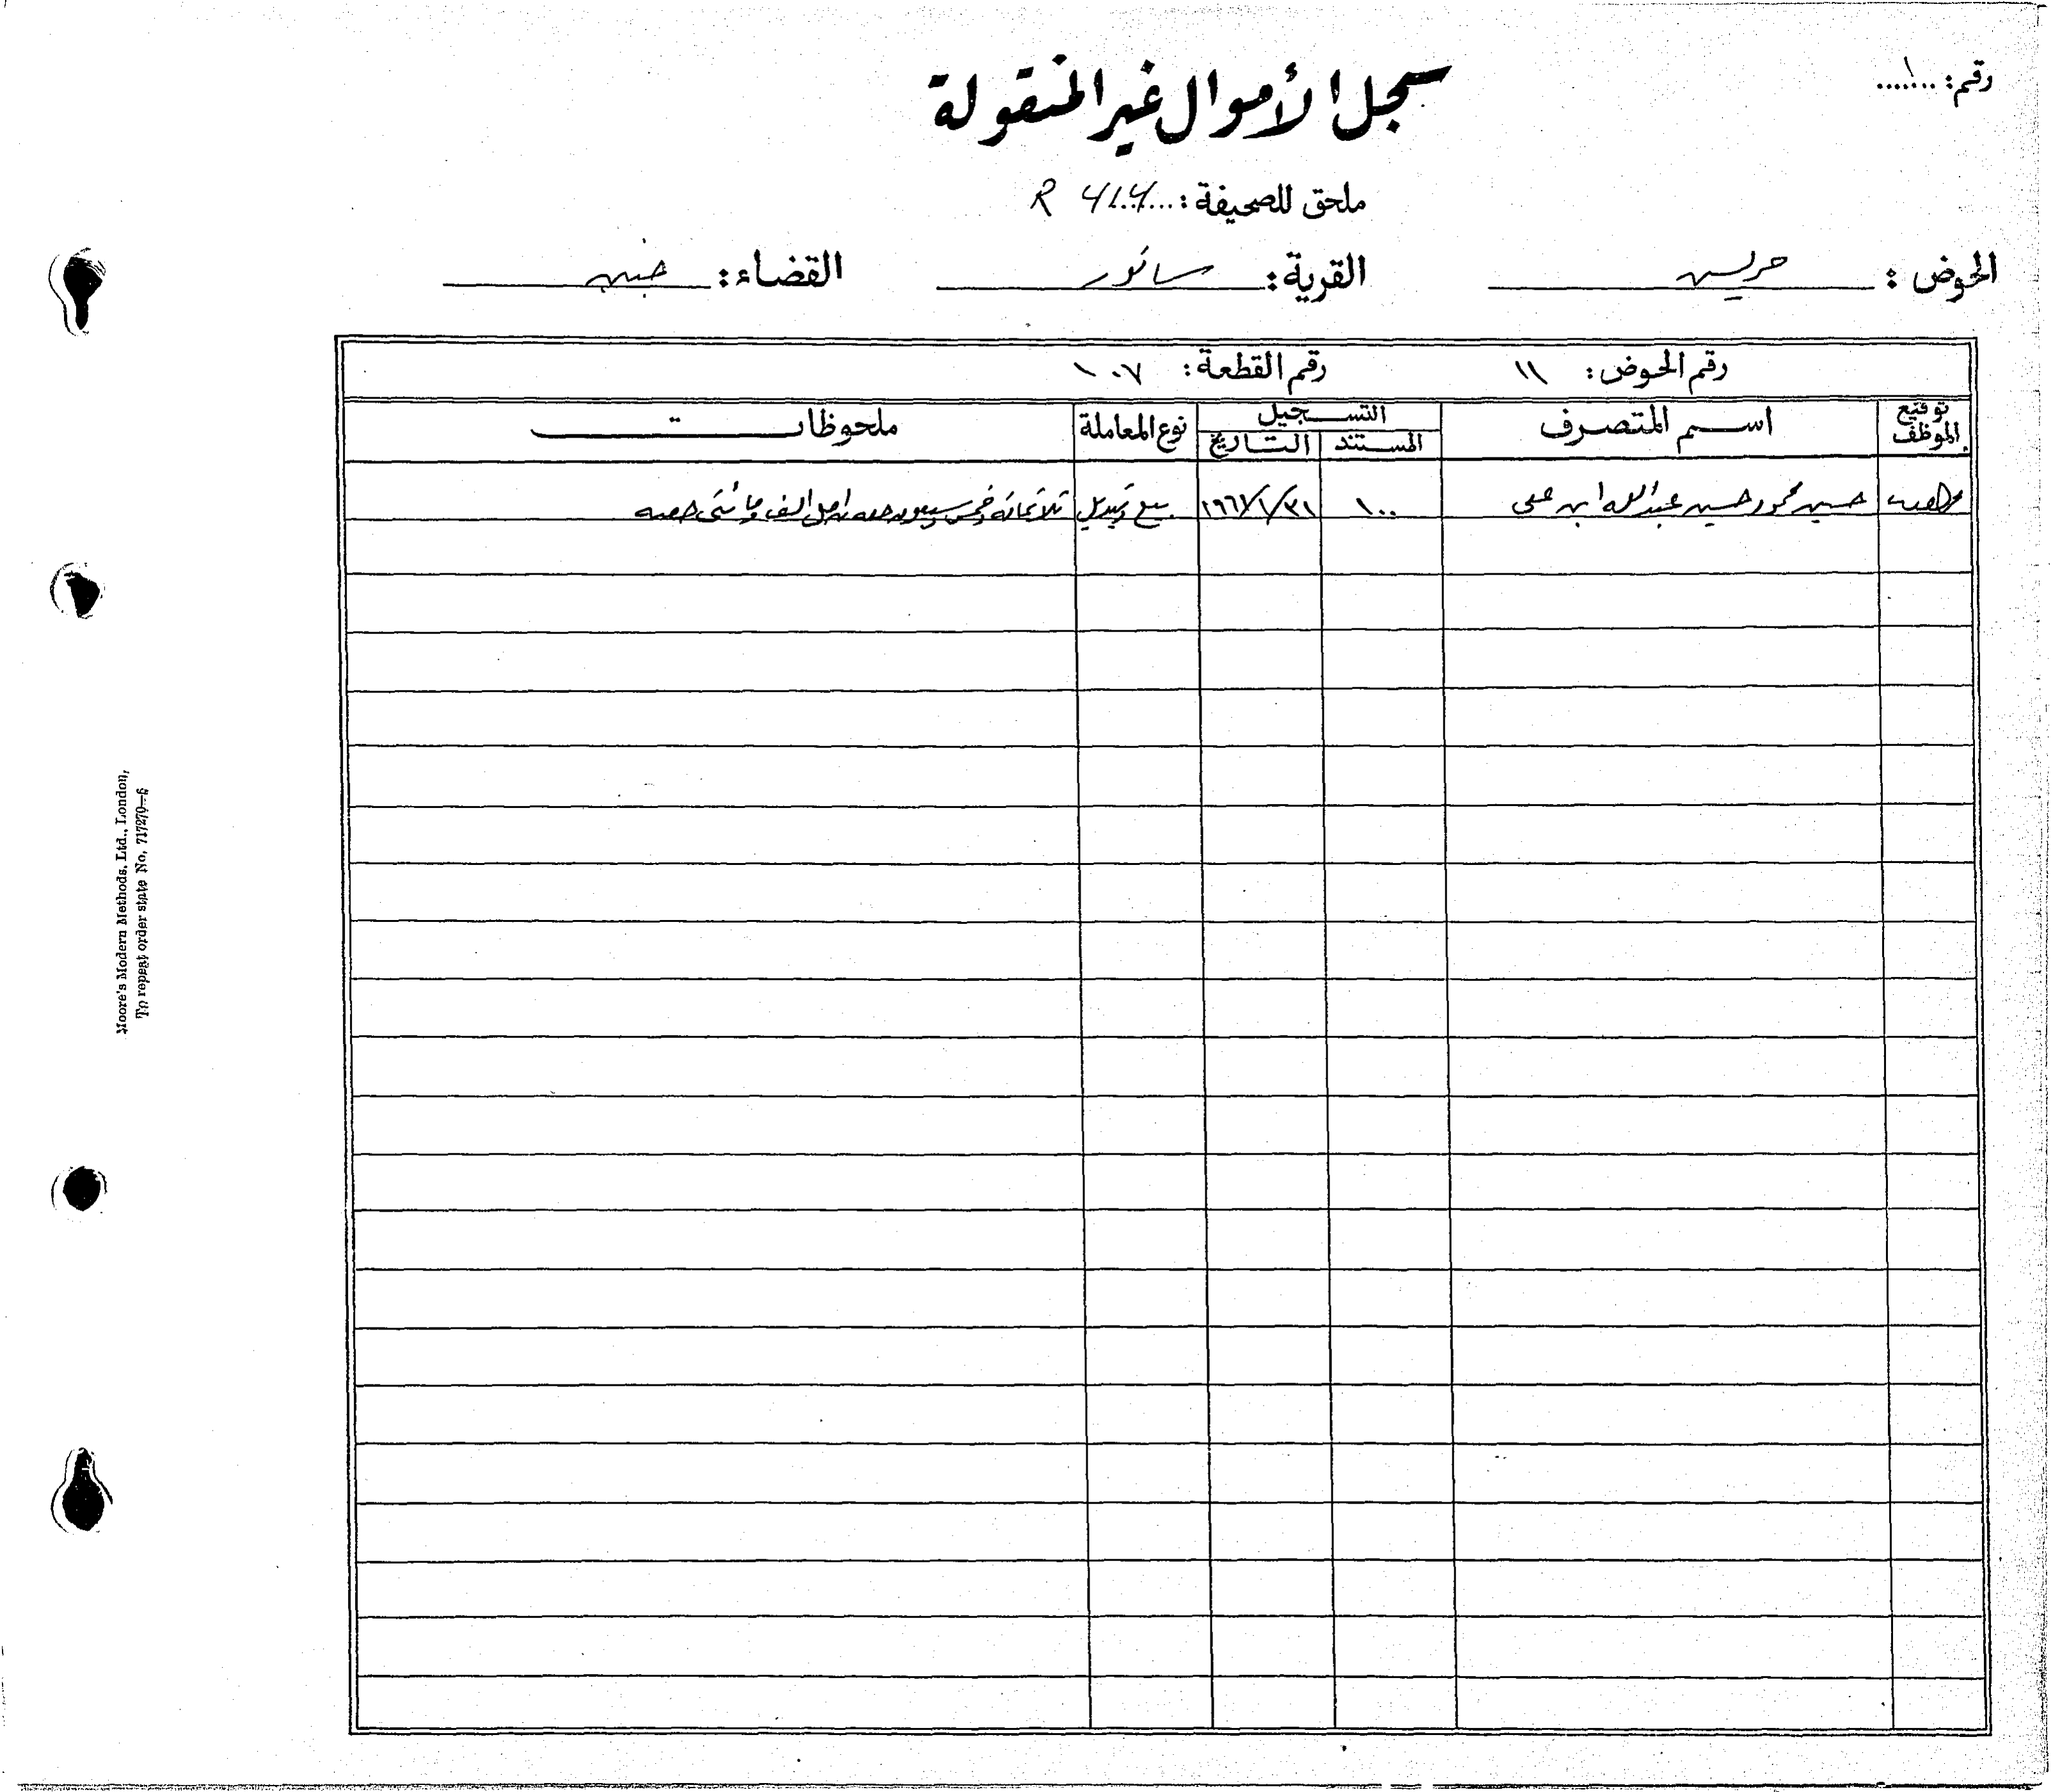 رقم: ١
سجل الأموال غير المنقولة
ملحق للصحيفة: 414 R
الحوض: حريس القرية: سانور القضاء: جنين
رقم الحوض: ١١ رقم القطعة: ١٠٧
توقيع الموظف اسم المتصرف التسجيل نوع المعاملة ملحوظات
المستند التاريخ
حسين محمود حسين عبدالله ابن علي ١٠٠ ١٩٦٧/١/٣١ بيع وتبديل ثلاثمائة وخمس وسبعون حصه من اصل الف ومائتي حصه
Moore's Modern Methods, Ltd., London,
To repeat order state No, 717270—6